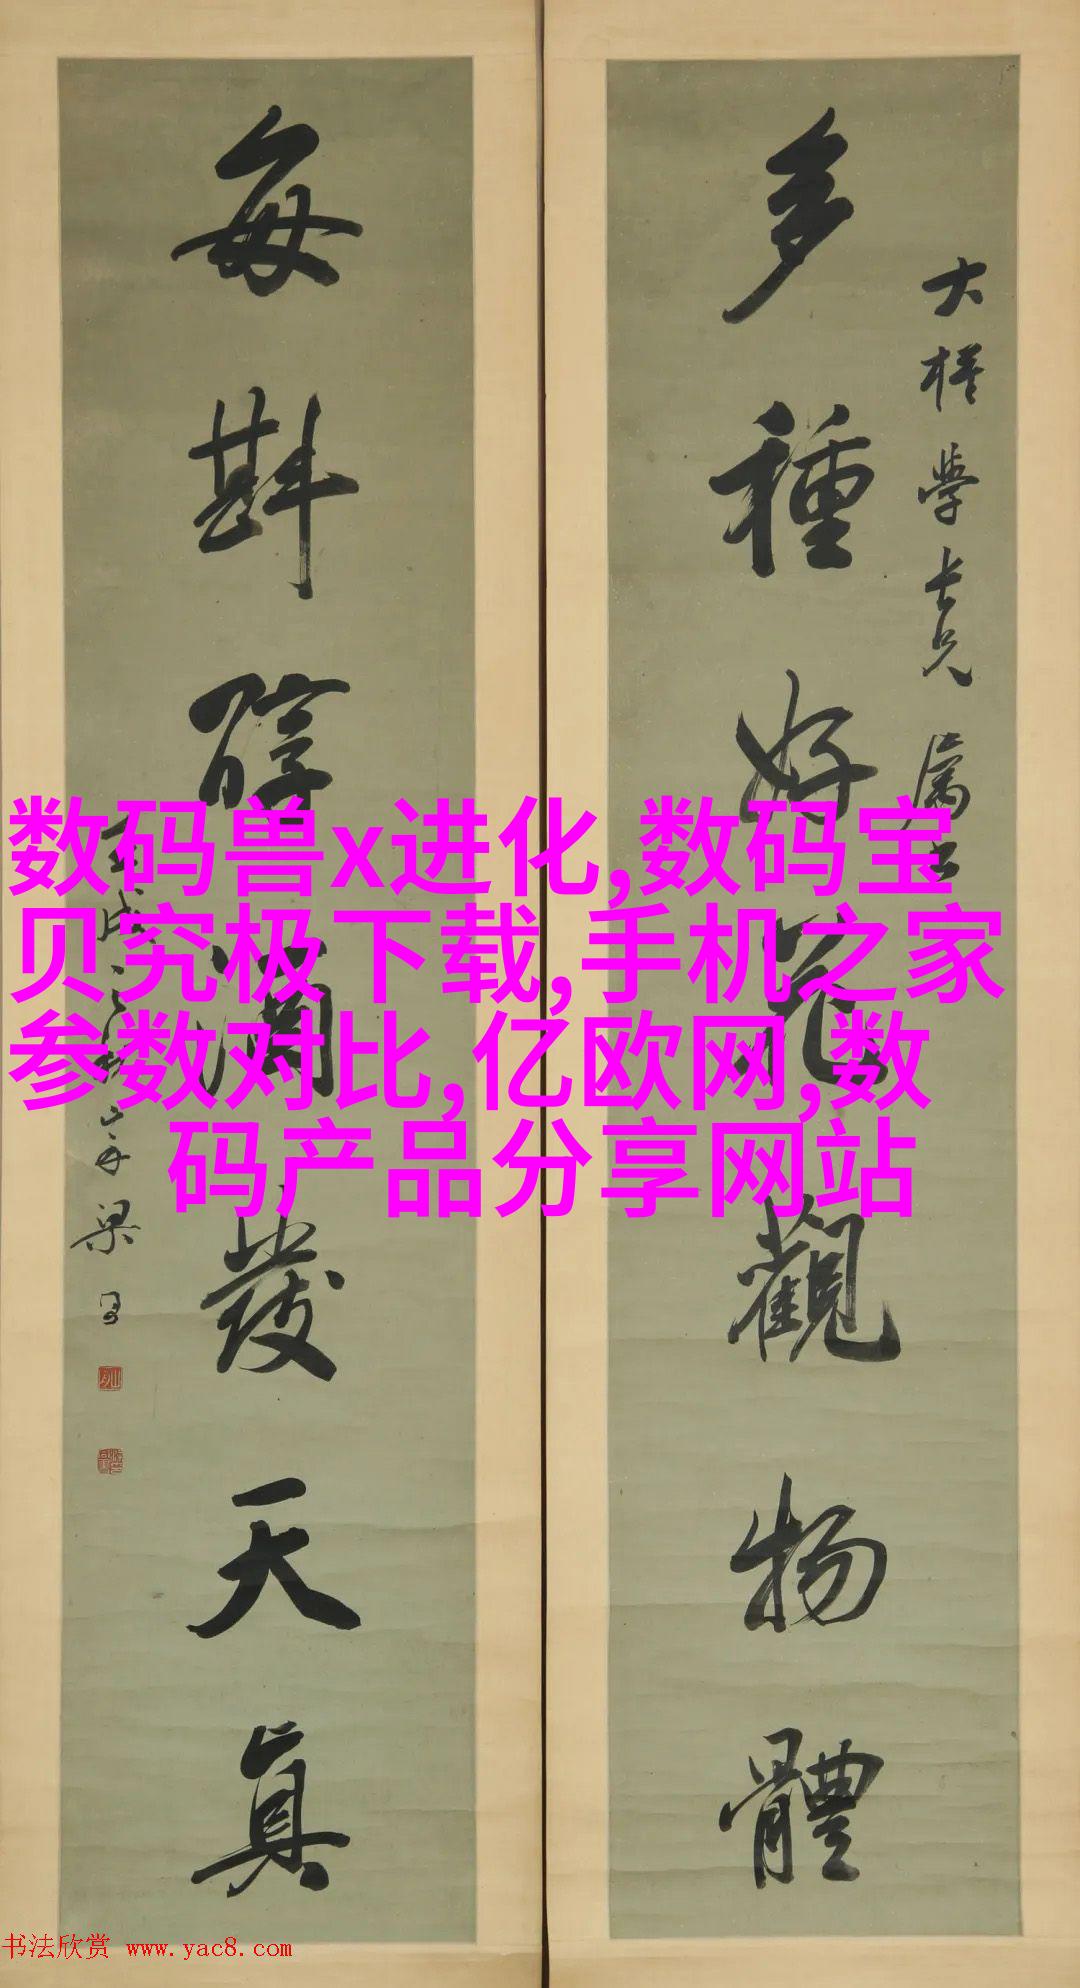 多種好花觀物體
大樁學长兄屬
每斟醇酒發天真
梁
数码兽x进化,数码宝
贝究极下载,手机之家
参数对比,亿欧网,数
码产品分享网站
书法欣赏 www.yac8.com